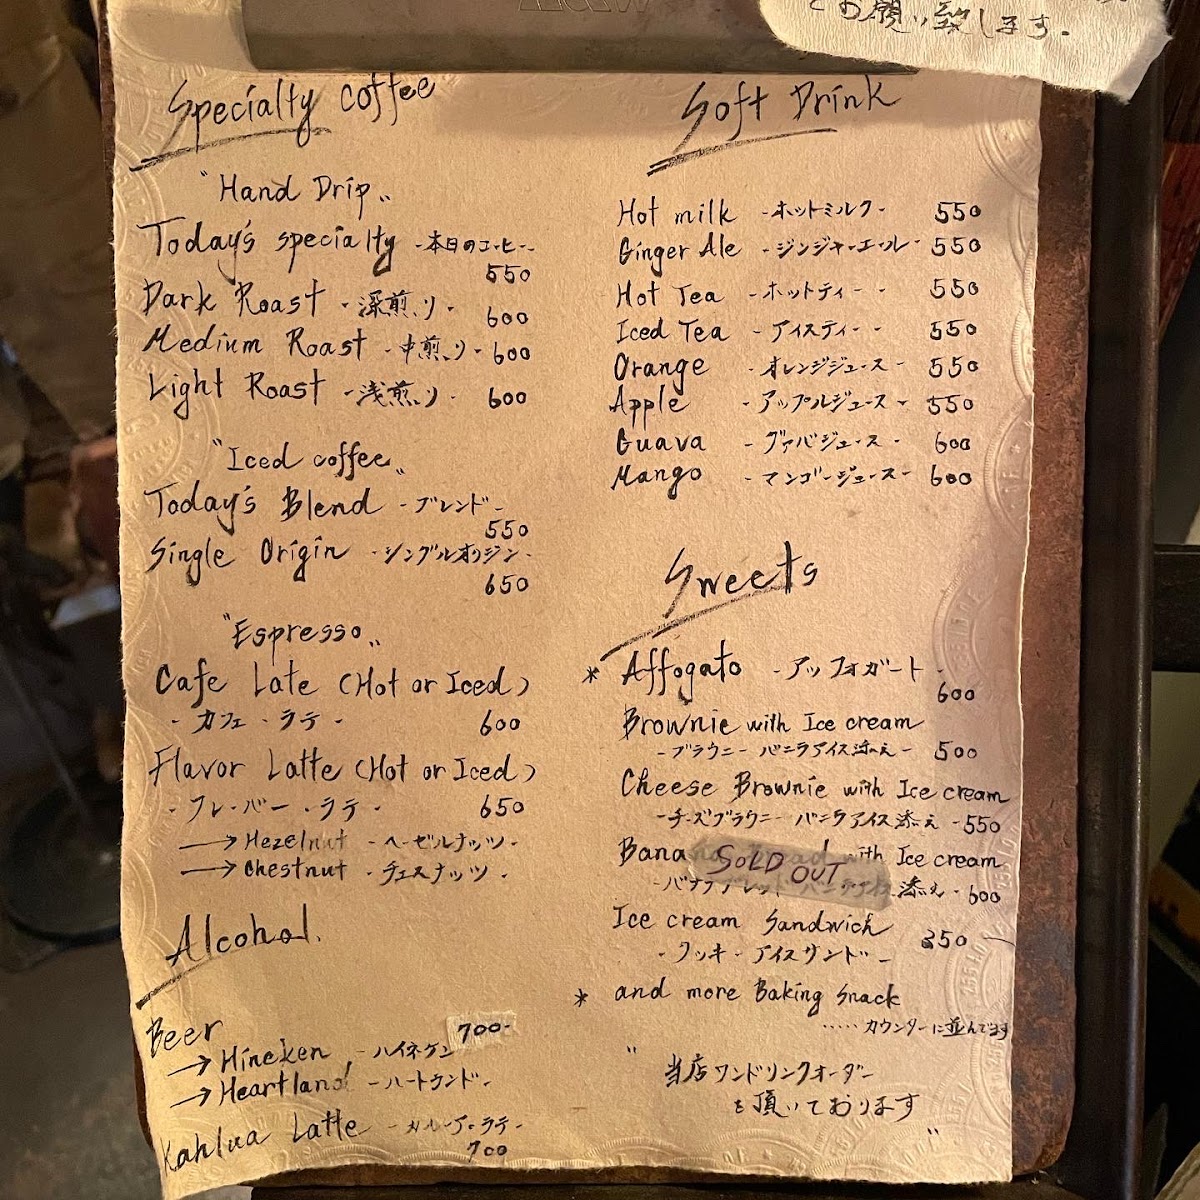 とお願い致します。
Specialty coffee
"Hand Drip"
Today's specialty -本日のコーヒー-
550
Dark Roast -深煎り- 600
Medium Roast -中煎り- 600
Light Roast -浅煎り- 600
"Iced coffee"
Today's Blend -ブレンド-
550
Single Origin -シングルオリジン-
650
"Espresso"
Cafe Late (Hot or Iced)
-カフェ・ラテ- 600
Flavor Latte (Hot or Iced)
-フレーバー・ラテ- 650
→ Hezelnut -ヘーゼルナッツ-
→ Chestnut -チェスナッツ-
Alcohol
Beer 700-
→ Hineken -ハイネケン
→ Heartland -ハートランド-
Kahlua Latte -カルーア・ラテ-
700
Soft Drink
Hot milk -ホットミルク- 550
Ginger Ale -ジンジャーエール- 550
Hot Tea -ホットティー- 550
Iced Tea -アイスティー- 550
Orange -オレンジジュース- 550
Apple -アップルジュース- 550
Guava -グァバジュース- 600
Mango -マンゴージュース- 600
Sweets
* Affogato -アッフォガート-
600
Brownie with Ice cream
-ブラウニー バニラアイス添え- 500
Cheese Brownie with Ice cream
-チーズブラウニー バニラアイス添え- 550
Banana Bread with Ice cream
SOLD OUT
-バナナブレッド バニラアイス添え- 600
Ice cream Sandwich 350
-クッキーアイスサンド-
* and more Baking Snack
.....カウンターに並んでます
"当店ワンドリンクオーダー
を頂いております"